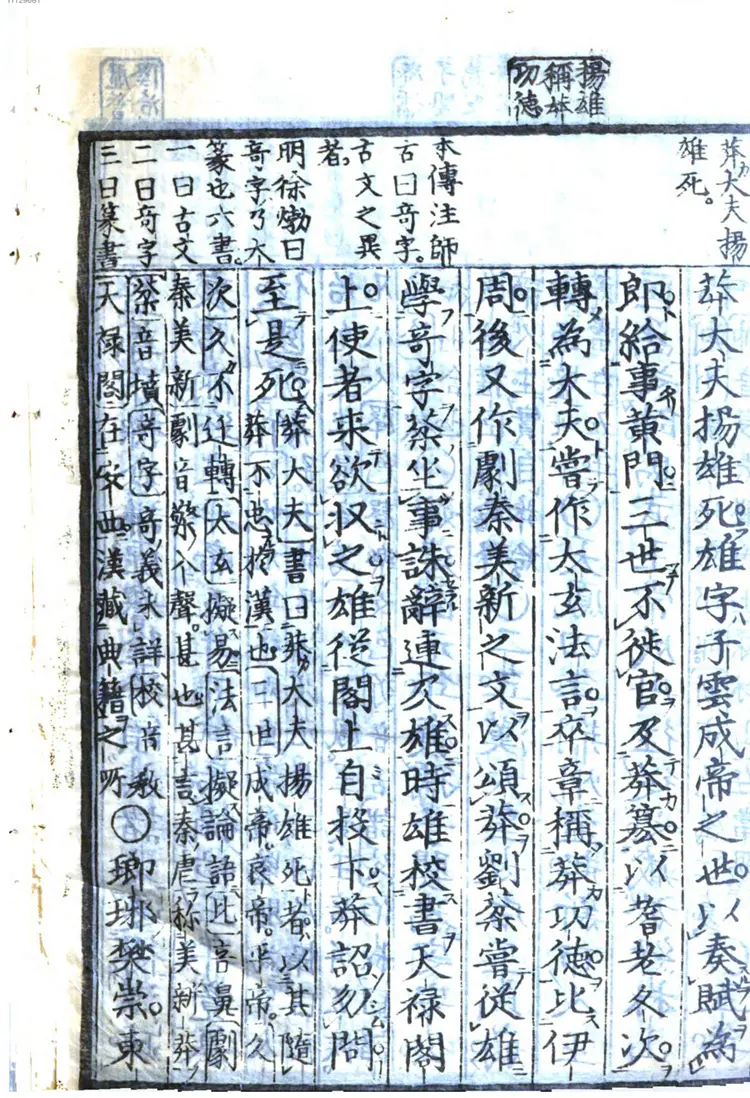 揚雄
稱莽
功德
莽大夫揚
雄死。
本傳注師
古曰奇字。
古文之異
者。
明徐勃曰
奇字乃大
篆也六書。
一曰古文
二曰奇字
三曰篆書
莽大夫揚雄死雄字子雲成帝之世以奏賦為
郎給事黃門三世不徙官及莽簒以耆老久次
轉為大夫嘗作太玄法言卒章稱莽功德比伊
周後又作劇秦美新之文以頌莽劉棻嘗從雄
學奇字棻坐事誅辭連及雄時雄校書天祿閣
上使者来欲収之雄從閣上自投下莽詔勿問
至是死
莽大夫書曰莽大夫揚雄死者以其隨
莽不忠於漢也三世成帝哀帝平帝久
次久不迁轉太玄擬易法言擬論語比音鼻劇
秦美新劇音繁入聲甚也甚言秦虐称美新莽
棻音墳奇字奇義未詳校音教
天祿閣在安西漢藏典籍之所〇瑯琊樊崇東